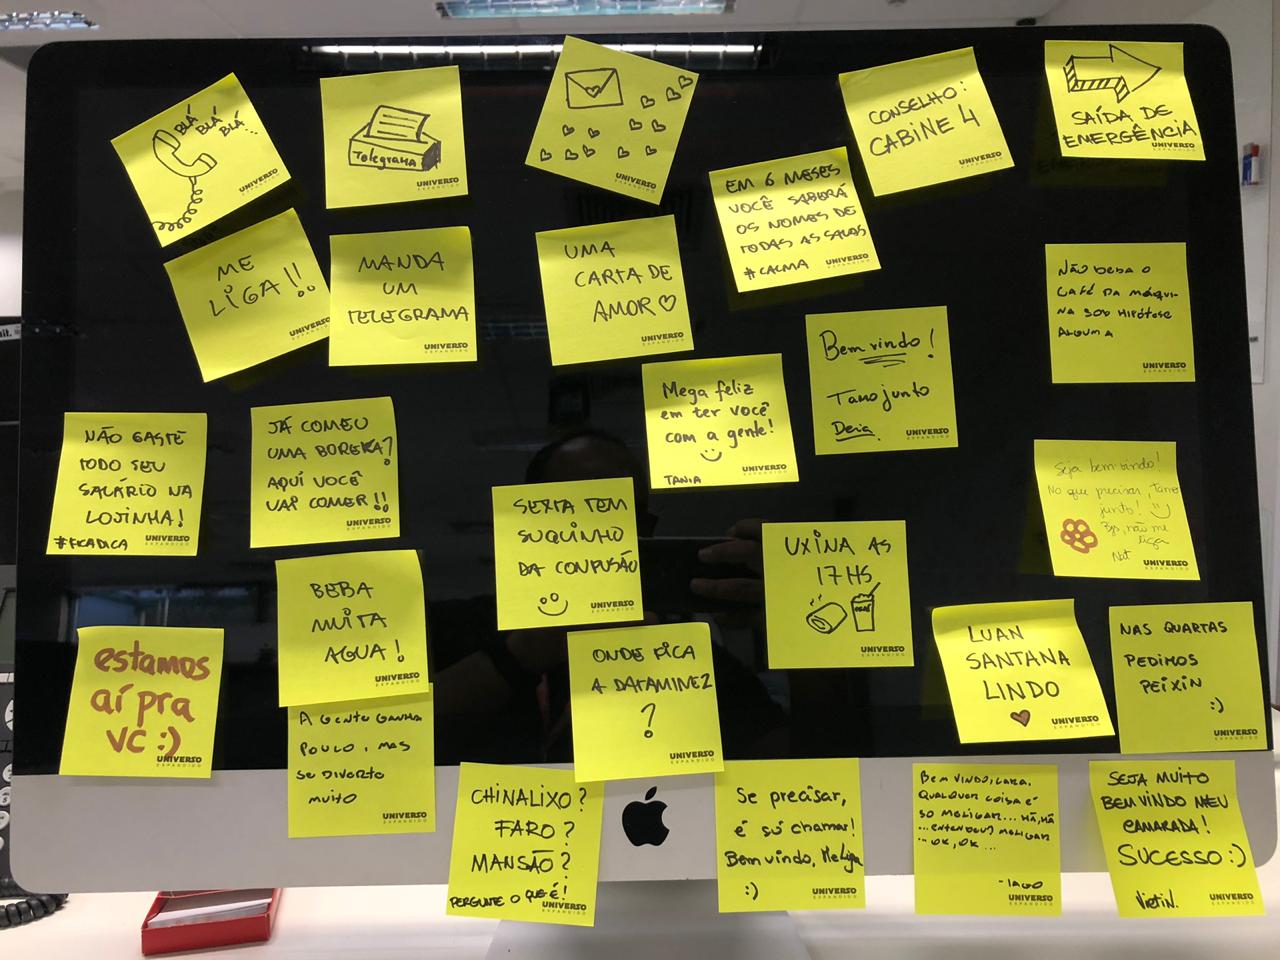 BLÁ
BLÁ
BLÁ...
UNIVERSO
EXPANDIDO
Telegrama
UNIVERSO
EXPANDIDO
UNIVERSO
EXPANDIDO
CONSELHO:
CABINE 4
UNIVERSO
EXPANDIDO
SAÍDA DE
EMERGÊNCIA
UNIVERSO
EXPANDIDO
ME
LIGA!!
UNIVERSO
EXPANDIDO
MANDA
UM
TELEGRAMA
UNIVERSO
EXPANDIDO
UMA
CARTA DE
AMOR
UNIVERSO
EXPANDIDO
EM 6 MESES
VOCÊ SABERÁ
OS NOMES DE
TODAS AS SALAS
#CALMA
UNIVERSO
EXPANDIDO
NÃO BEBA O
CAFÉ DA MÁQUI-
NA SOB HIPÓTESE
ALGUMA
UNIVERSO
EXPANDIDO
Bem vindo!
Tamo junto
UNIVERSO
EXPANDIDO
Mega feliz
em ter você
com a gente!
TANIA
UNIVERSO
EXPANDIDO
NÃO GASTE
TODO SEU
SALÁRIO NA
LOJINHA!
#FICADICA
UNIVERSO
EXPANDIDO
JÁ COMEU
UMA BOREKA?
AQUI VOCÊ
VAI COMER!!
UNIVERSO
EXPANDIDO
SEXTA TEM
SUQUINHO
DA CONFUSÃO
UNIVERSO
EXPANDIDO
UXINA AS
17 HS
UNIVERSO
EXPANDIDO
Seja bem vindo!
No que precisar, tamo
junto!
Bjs, não me
liga
Nat
UNIVERSO
EXPANDIDO
BEBA
MUITA
AGUA!
UNIVERSO
EXPANDIDO
estamos
aí pra
vc :)
UNIVERSO
EXPANDIDO
ONDE FICA
A DATAMINEZ
?
UNIVERSO
EXPANDIDO
LUAN
SANTANA
LINDO
UNIVERSO
EXPANDIDO
NAS QUARTAS
PEDIMOS
PEIXIN
:)
UNIVERSO
EXPANDIDO
A GENTE GANHA
POUCO, MAS
SE DIVERTE
MUITO
UNIVERSO
EXPANDIDO
CHINALIXO?
FARO?
MANSÃO?
PERGUNTE O QUE É!
UNIVERSO
EXPANDIDO
Se precisar,
é só chamar!
Bem vindo, MeLiga
:)
UNIVERSO
EXPANDIDO
BEM VINDO, CARA.
QUALQUER COISA É
SO MELIGAR... HÃ, HÃ
...ENTENDEU? MELIGAR
... OK, OK...
- IAGO
UNIVERSO
EXPANDIDO
SEJA MUITO
BEM VINDO MEU
CAMARADA!
SUCESSO :)
UNIVERSO
EXPANDIDO